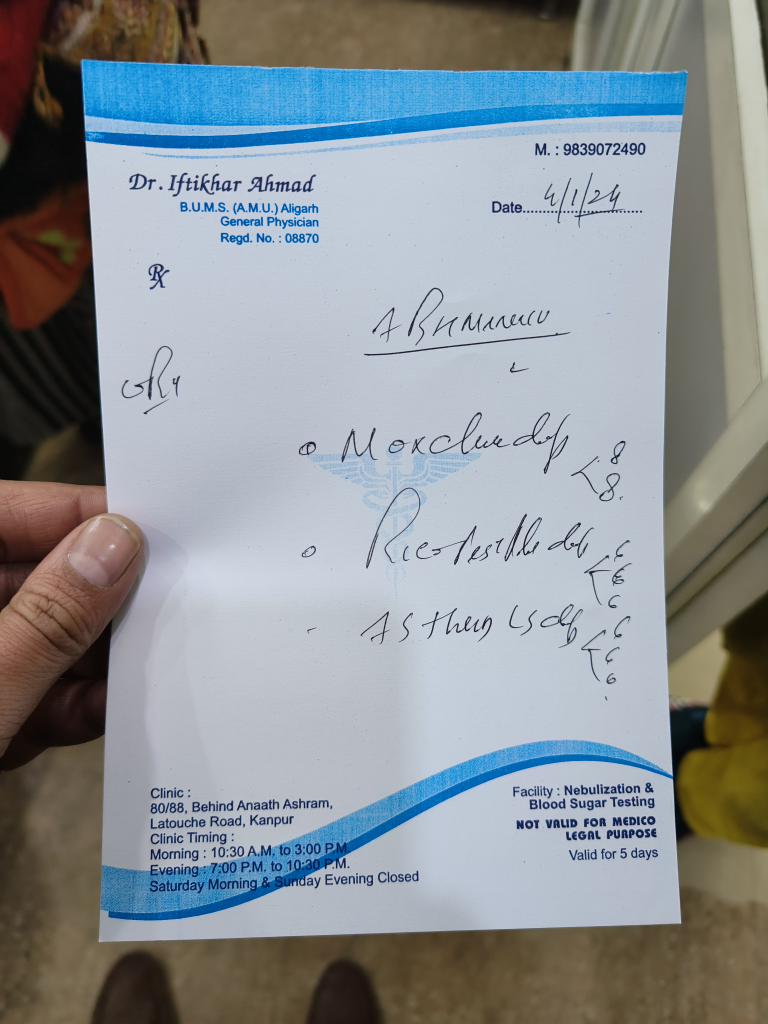 M. : 9839072490
Dr. Iftikhar Ahmad
B.U.M.S. (A.M.U.) Aligarh
General Physician
Regd. No. : 08870
Date 4/1/24
Rx
drop
8
8
drop
6
6
6
drop
6
6
6
Clinic :
80/88, Behind Anaath Ashram,
Latouche Road, Kanpur
Clinic Timing :
Morning : 10:30 A.M. to 3:00 P.M.
Evening : 7:00 P.M. to 10:30 P.M.
Saturday Morning & Sunday Evening Closed
Facility : Nebulization &
Blood Sugar Testing
NOT VALID FOR MEDICO
LEGAL PURPOSE
Valid for 5 days